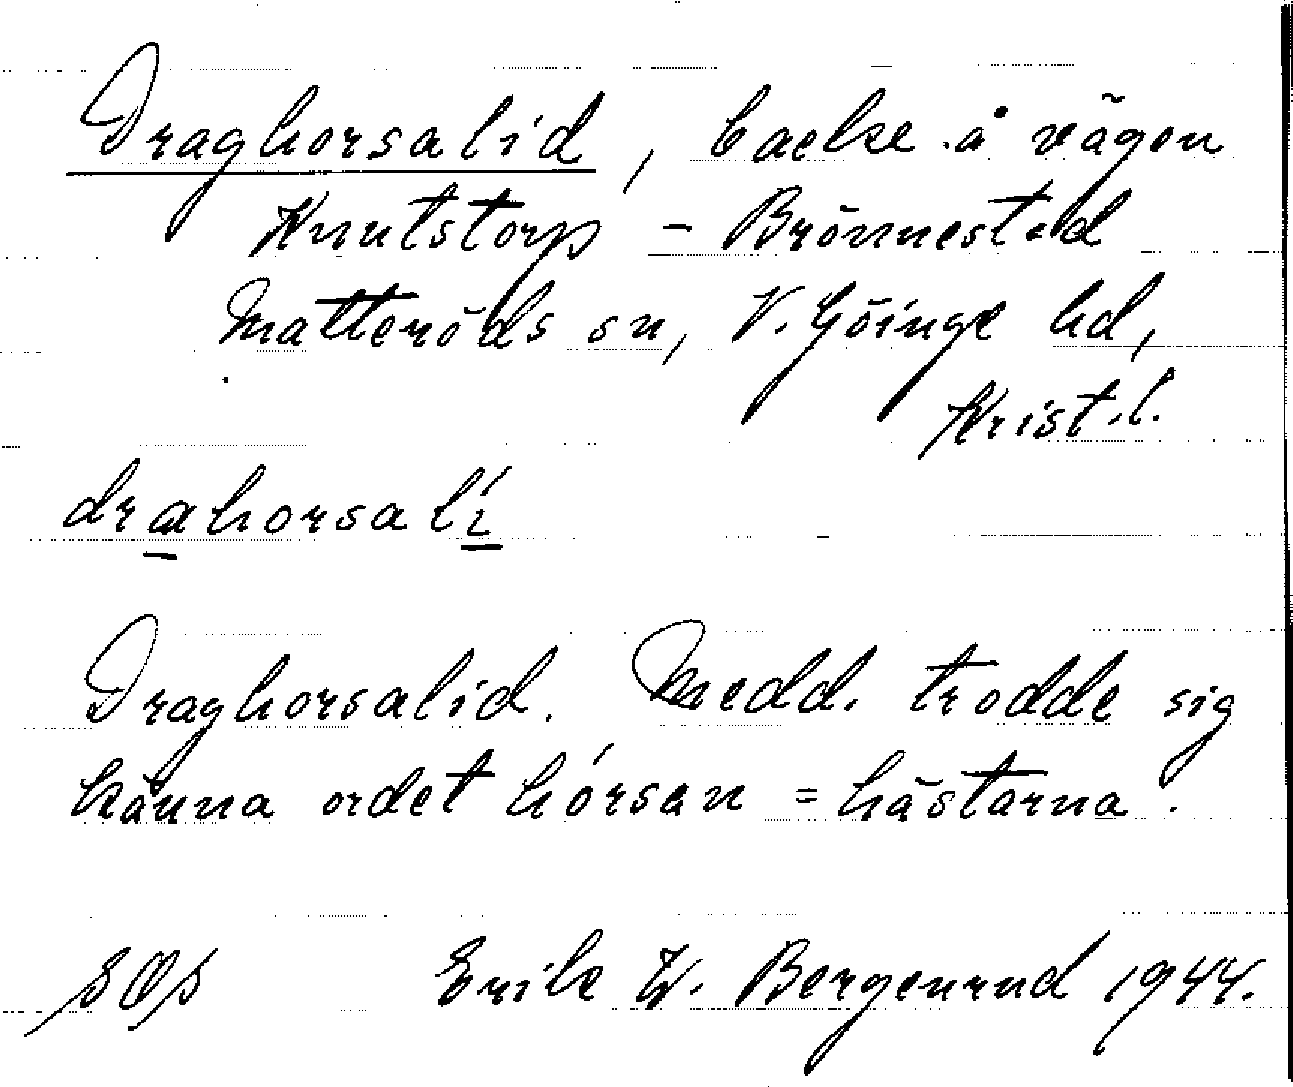 Draghorsalid, backe å vägen
Knutstorp - Brönnestad
Matteröds sn, V. Göinge hd,
Krist.l.
drahorsalí
Draghorsalid. Medd. trodde sig
känna ordet hórsan = hästarna.
Erik W. Bergenrud 1944.